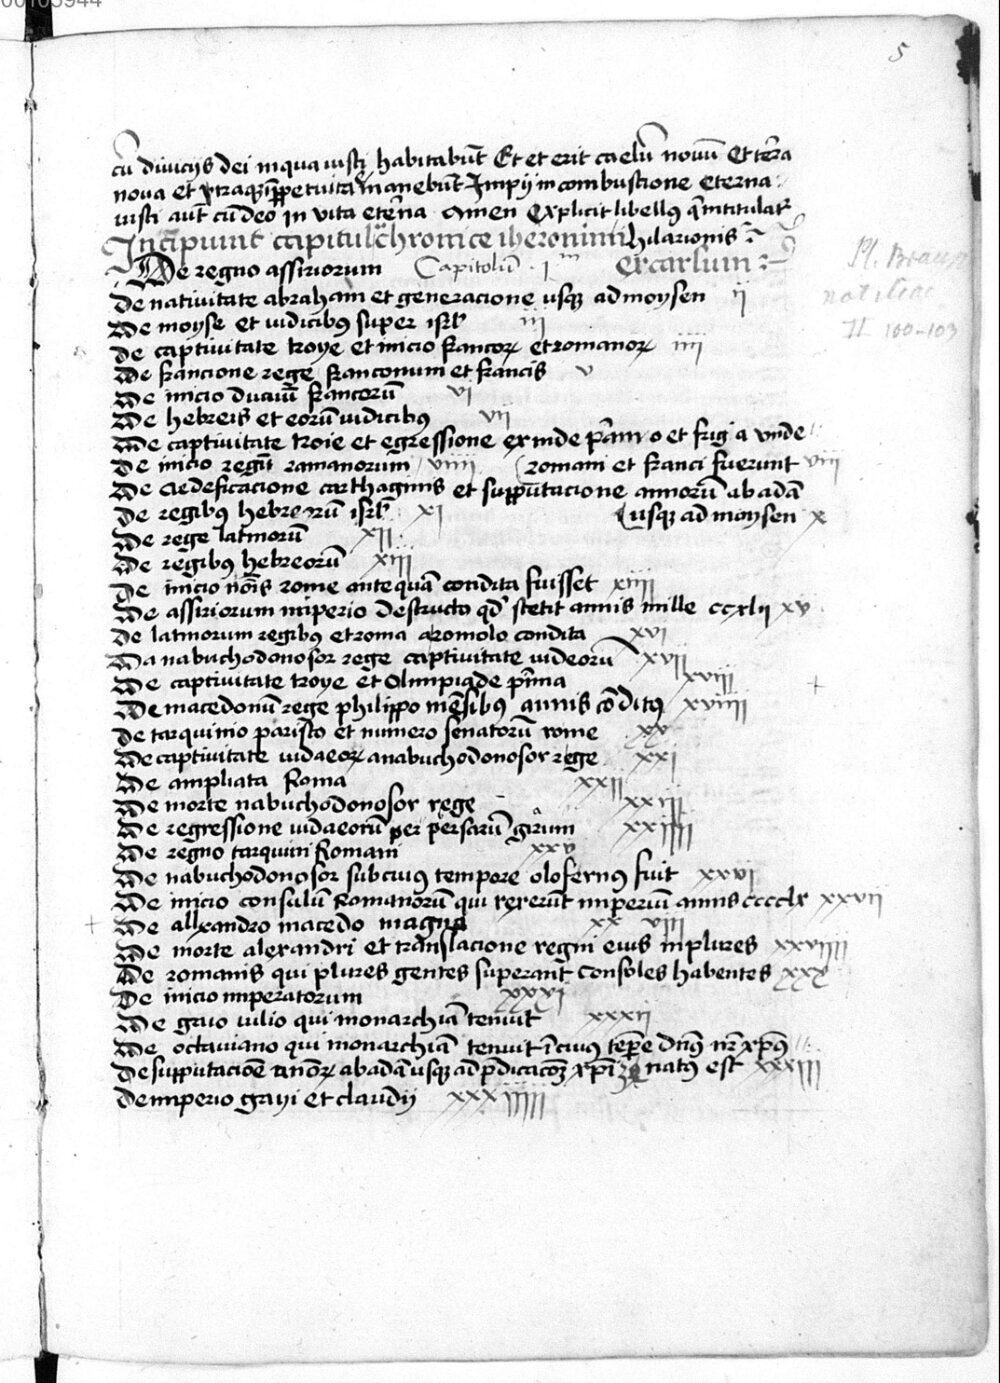 5
cū diviciis dei in qua iusti habitabūt Et et erit caelū novū Et terra
nova et utraqʒ inppetuitā manebūt Impij in combustione eterna
iusti aut cū deo in vita eterna Amen Explicit libellꝰ q intitulat
Incipiunt capitula chronice iheronimi hilarionis
De regno assiriorum Capitolū Im excarsum
De nativitate abraham et generacione usqʒ ad moysen ii
De moyse et iudicibꝰ super isrl iii
De captivitate troye et inicio francoꝝ et romanoꝝ iiii
De francione rege franconum et francis v
De inicio ducum francorū vi
De hebreis et eorū iudicibꝰ vii
De captivitate troie et egressione exinde priamo et frigia unde
De inicio regū ramanorum viiii romani et franci fuerunt viii
De aedeficacione carthaginis et supputacione annorū ab adā
De regibꝰ hebreorū isrl xi usqʒ ad moysen x
De rege latinorū xii
De regibꝰ hebreorū xiii
De inicio nōis rome antequā condita fuisset xiiii
De assiriorum imperio destructo qd stetit annis mille ccxlii xv
De latinorum regibꝰ et roma a romolo condita xvi
Da nabuchodonosor rege captivitate iudeorū xvii
De captivitate troye et olimpiade prima xviii
De macedonū rege philippo mēsibus annis cōditꝰ xviiii
De tarquinio parisco et numero senatorū rome xx
De captivitate iudaeoꝝ a nabuchodonosor rege xxi
De ampliata Roma xxii
De morte nabuchodonosor rege xxiii
De regressione iudaeorū per persarū girum xxiiii
De regno tarquini Romani xxv
De nabuchodonosor sub cuius tempore olofernꝰ fuit xxvi
De inicio consulū Romanorum qui rexerunt imperiū annis cccclx xxvii
De allexandro macedo magno xx viii
De morte alexandri et translacione regni eius in plures xxviiii
De romanis qui plures gentes superant consoles habentes xxx
De inicio imperatorum xxxi
De gaio iulio qui monarchiā tenuit xxxii
De octaviano qui monarchiā tenuit ī cuiꝰ tepore dnꝰ nr xpūs
De supputacione annoꝝ ab adā usqʒ ad pdicacōꝫ xpi natꝰ est xxxiii
De imperio gayi et claudij xxxiiiii
Pl. Braun
notitiae
II 100-103